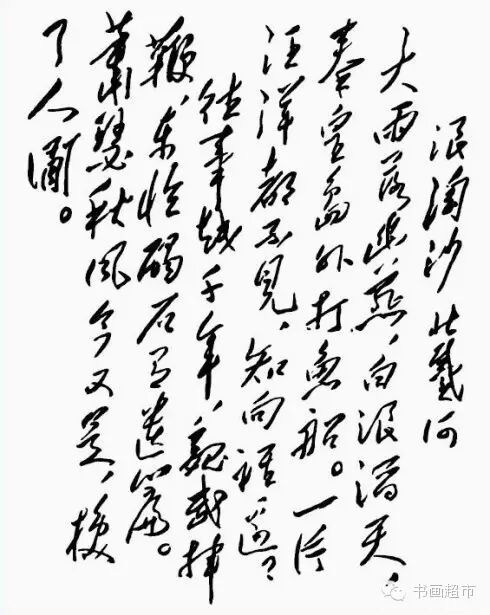 浪淘沙 北戴河
大雨落幽燕，白浪滔天，
秦皇島外打魚船。一片
汪洋都不見，知向誰邊？
往事越千年，魏武揮
鞭，东臨碣石有遺篇。
蕭瑟秋風今又是，換
了人間。
书画超市